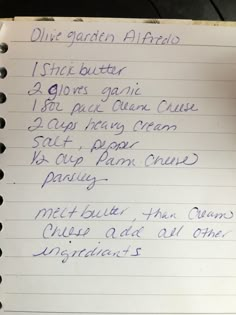 Olive garden Alfredo
1 Stick butter
2 gloves garlic
1 8oz pack Cream Cheese
2 Cups heavy Cream
Salt, pepper
1/2 Cup Parm Cheese
parsley
melt butter, than Cream
Cheese add all other
ingrediants